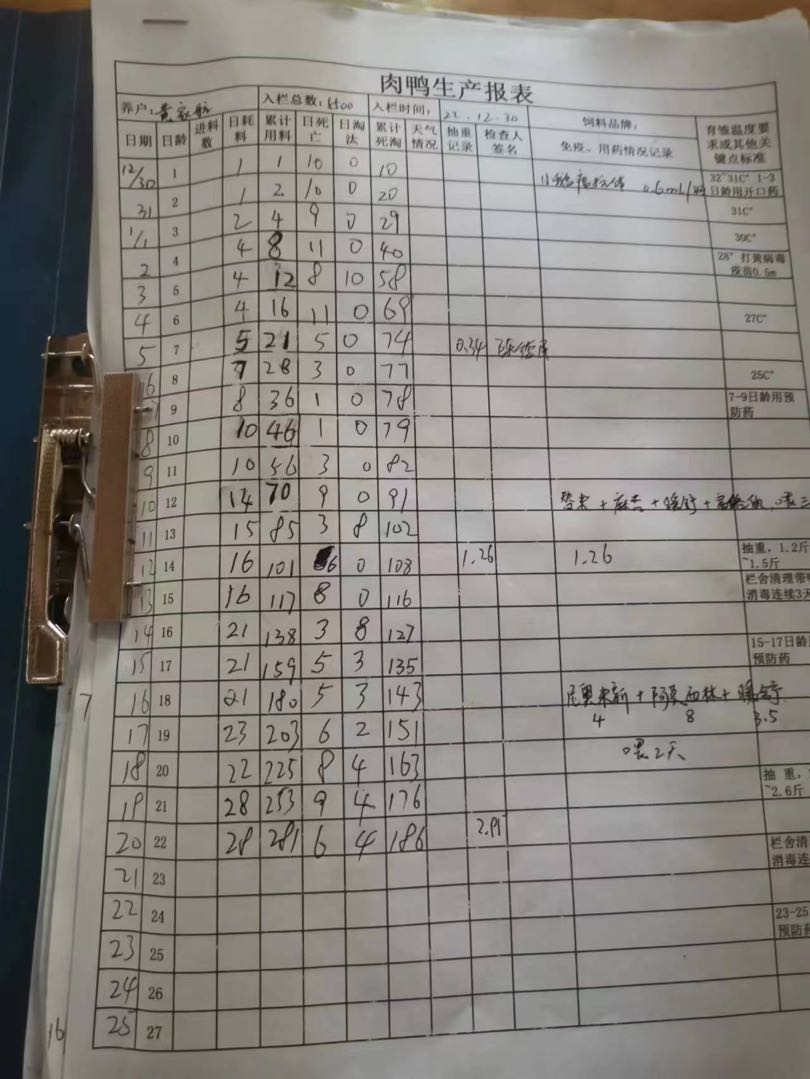 肉鸭生产报表
养户: 入栏总数: 入栏时间: 22.12.30 饲料品牌:
日期 日龄 进料数 日耗料 累计用料 日死亡 日淘汰 累计死淘 天气情况 抽重记录 检查人签名 免疫、用药情况记录 育雏温度要求或其他关键点标准
12/30 1 1 1 10 0 10 0.6ml/ 32~31C° 1-3日龄用开口药
31 2 1 2 10 0 20 31C°
1/1 3 2 4 9 0 29 30C°
2 4 4 8 11 0 40 28° 打黄病毒疫苗0.5m
3 5 4 12 8 10 58
4 6 4 16 11 0 69 27C°
5 7 5 21 5 0 74 0.34
6 8 7 28 3 0 77 25C°
9 8 36 1 0 78 7-9日龄用预防药
8 10 10 46 1 0 79
9 11 10 56 3 0 82
10 12 14 70 9 0 91
11 13 15 85 3 8 102
12 14 16 101 6 0 108 1.26 1.26 抽重，1.2斤~1.5斤
13 15 16 117 8 0 116 栏舍清理带 消毒连续3天
14 16 21 138 3 8 127
15 17 21 159 5 3 135 15-17日龄 预防药
7 16 18 21 180 5 3 143 阿莫西林+
4 8 3.5
17 19 23 203 6 2 151
喂2天
18 20 22 225 8 4 163
19 21 28 253 9 4 176 抽重， ~2.6斤
20 22 28 281 6 4 186
21 23 栏舍清 消毒连
22 24
23 25 23-25 预防药
24 26
25 27
16